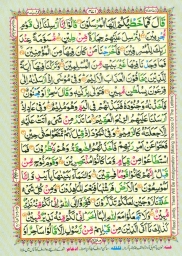 قَالَ فَمَا خَطْبُكُمْ أَيُّهَا الْمُرْسَلُونَ قَالُوا إِنَّا أُرْسِلْنَا إِلَى قَوْمٍ
مُجْرِمِينَ لِنُرْسِلَ عَلَيْهِمْ حِجَارَةً مِنْ طِينٍ مُسَوَّمَةً عِنْدَ
رَبِّكَ لِلْمُسْرِفِينَ فَأَخْرَجْنَا مَنْ كَانَ فِيهَا مِنَ الْمُؤْمِنِينَ
فَمَا وَجَدْنَا فِيهَا غَيْرَ بَيْتٍ مِنَ الْمُسْلِمِينَ وَتَرَكْنَا فِيهَا آيَةً
لِلَّذِينَ يَخَافُونَ الْعَذَابَ الْأَلِيمَ وَفِي مُوسَى إِذْ أَرْسَلْنَاهُ إِلَى
فِرْعَوْنَ بِسُلْطَانٍ مُبِينٍ فَتَوَلَّى بِرُكْنِهِ وَقَالَ سَاحِرٌ أَوْ مَجْنُونٌ
فَأَخَذْنَاهُ وَجُنُودَهُ فَنَبَذْنَاهُمْ فِي الْيَمِّ وَهُوَ مُلِيمٌ وَفِي عَادٍ إِذْ
أَرْسَلْنَا عَلَيْهِمُ الرِّيحَ الْعَقِيمَ مَا تَذَرُ مِنْ شَيْءٍ أَتَتْ عَلَيْهِ
إِلَّا جَعَلَتْهُ كَالرَّمِيمِ وَفِي ثَمُودَ إِذْ قِيلَ لَهُمْ تَمَتَّعُوا حَتَّى حِينٍ
فَعَتَوْا عَنْ أَمْرِ رَبِّهِمْ فَأَخَذَتْهُمُ الصَّاعِقَةُ وَهُمْ يَنْظُرُونَ فَمَا
اسْتَطَاعُوا مِنْ قِيَامٍ وَمَا كَانُوا مُنْتَصِرِينَ وَقَوْمَ نُوحٍ مِنْ
قَبْلُ إِنَّهُمْ كَانُوا قَوْمًا فَاسِقِينَ وَالسَّمَاءَ بَنَيْنَاهَا بِأَيْدٍ وَإِنَّا
لَمُوسِعُونَ وَالْأَرْضَ فَرَشْنَاهَا فَنِعْمَ الْمَاهِدُونَ وَمِنْ كُلِّ شَيْءٍ
خَلَقْنَا زَوْجَيْنِ لَعَلَّكُمْ تَذَكَّرُونَ فَفِرُّوا إِلَى اللَّهِ إِنِّي لَكُمْ مِنْهُ نَذِيرٌ
مُبِينٌ وَلَا تَجْعَلُوا مَعَ اللَّهِ إِلَهًا آخَرَ إِنِّي لَكُمْ مِنْهُ نَذِيرٌ مُبِينٌ
كَذَلِكَ مَا أَتَى الَّذِينَ مِنْ قَبْلِهِمْ مِنْ رَسُولٍ إِلَّا قَالُوا سَاحِرٌ أَوْ